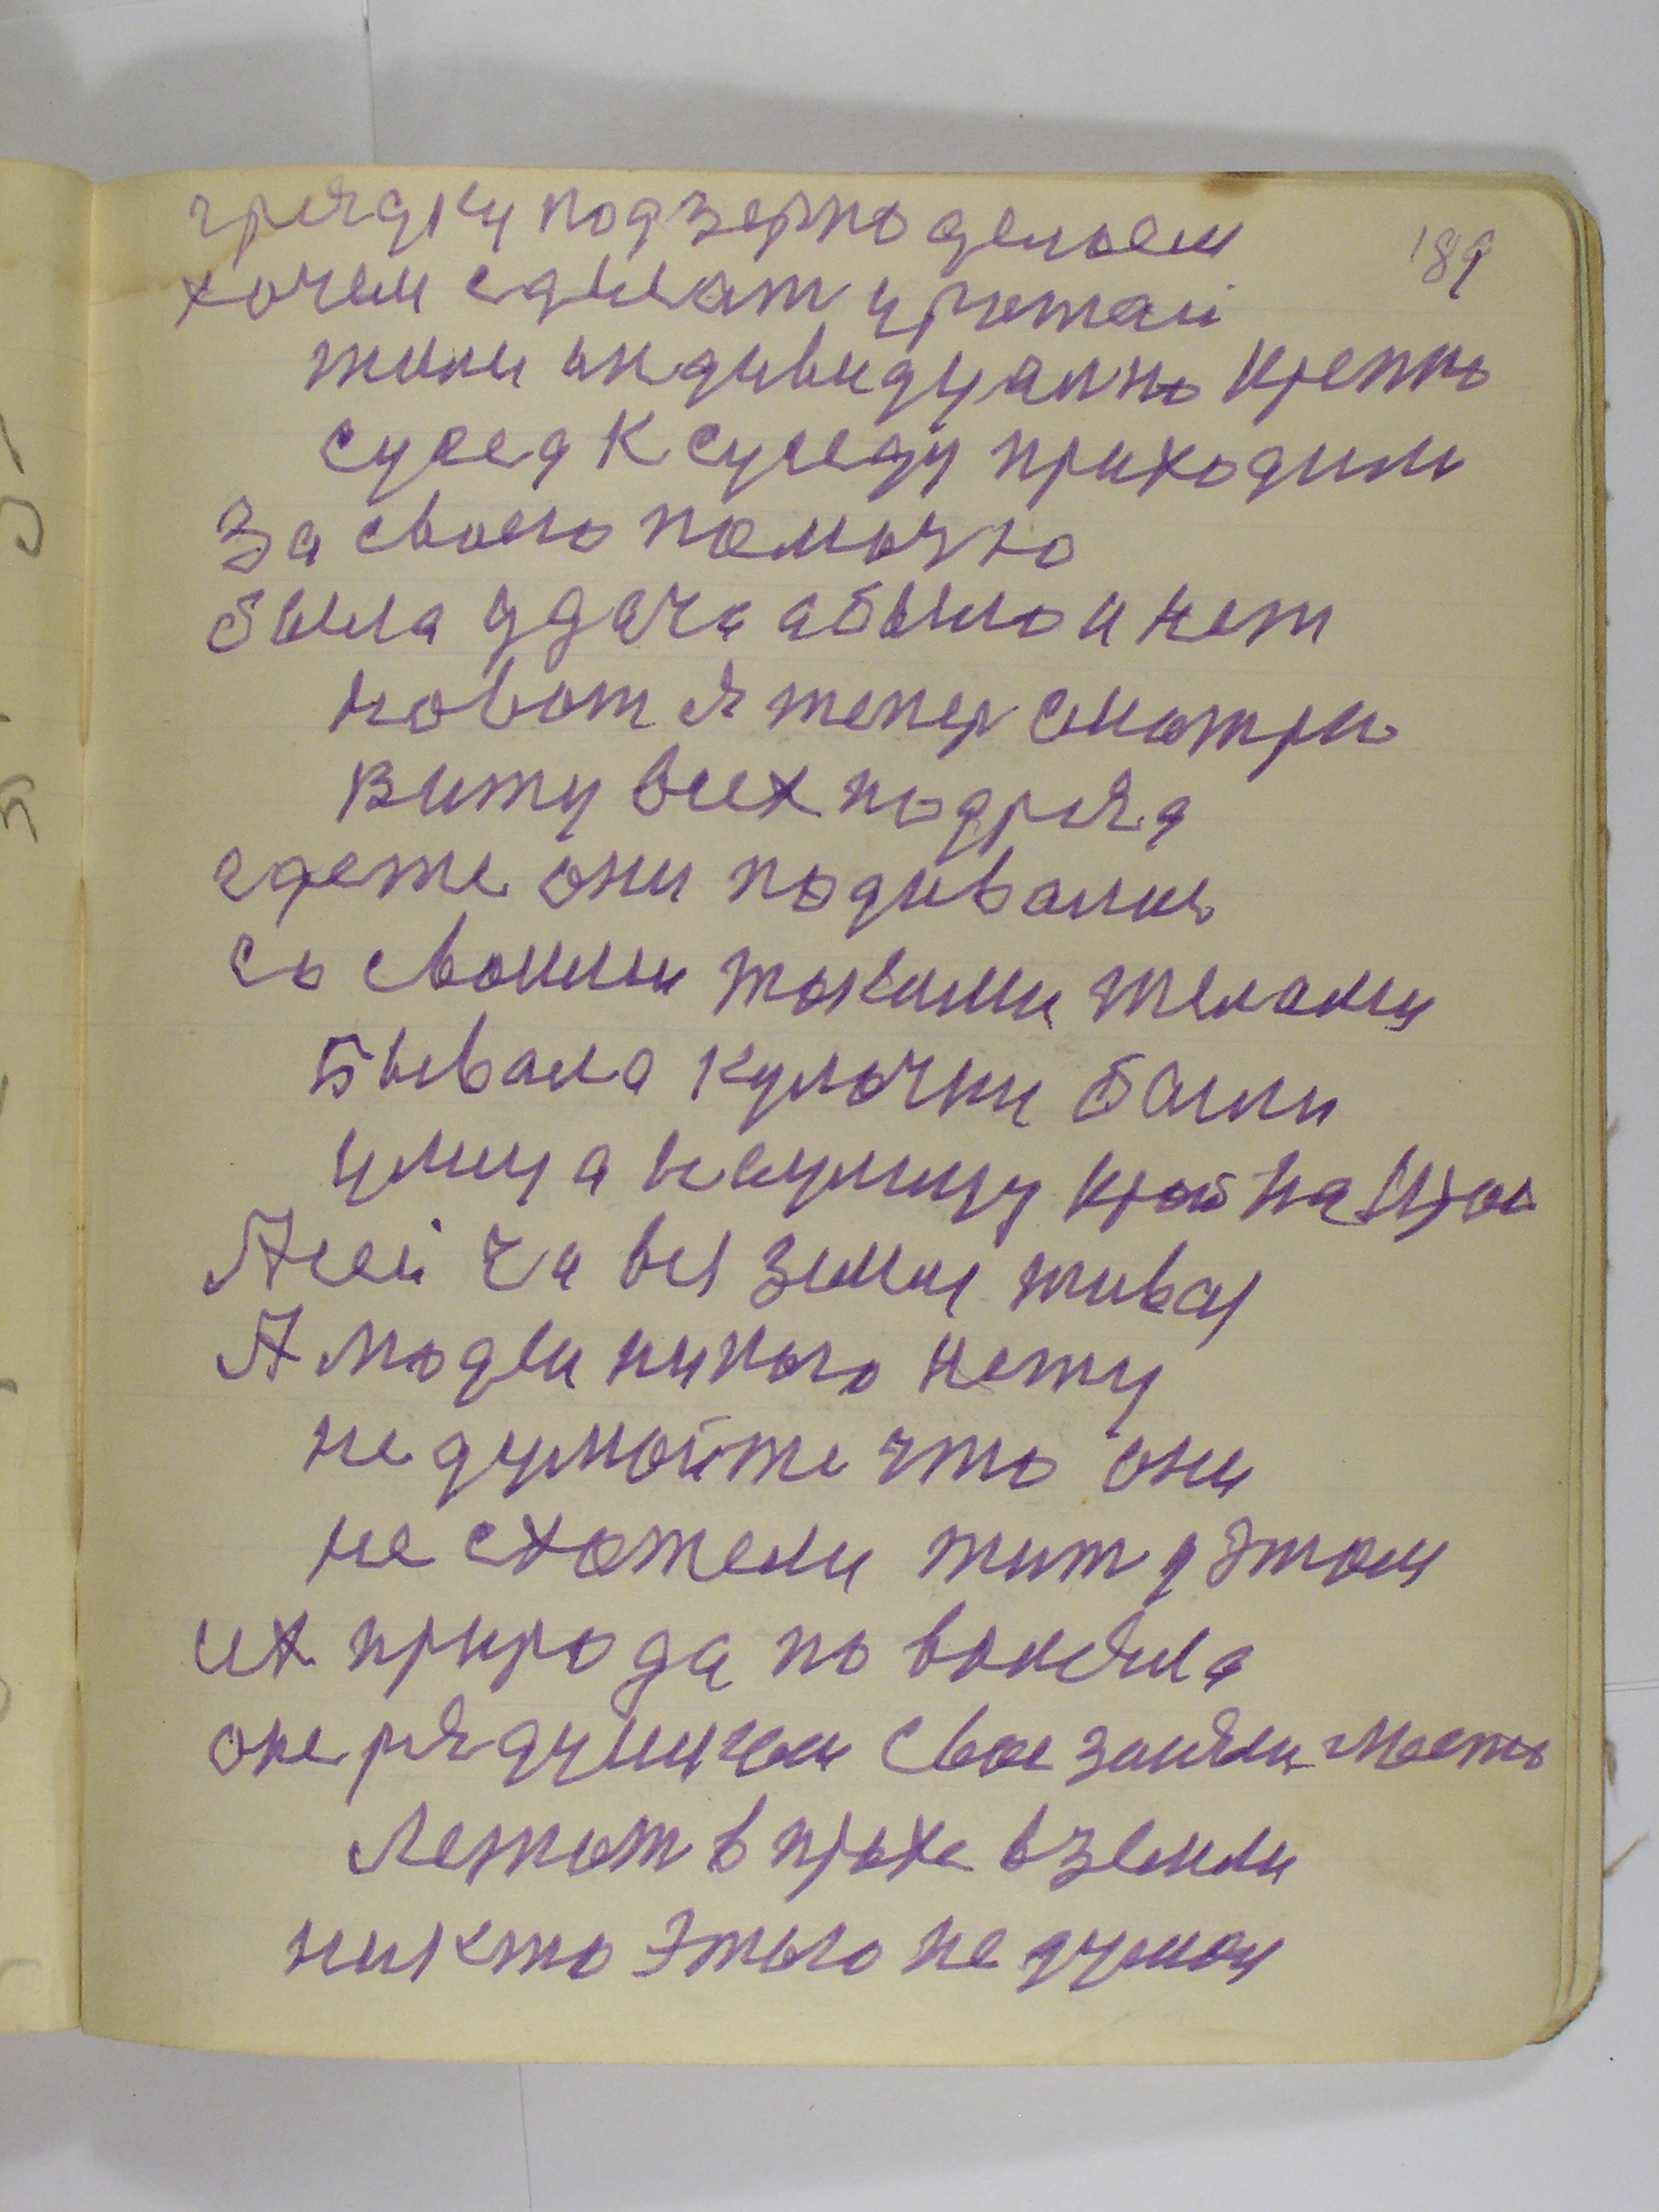 189
грядку под зерно делаем
хочем сделат урожай
жили индивидуално крепко
сусед к суседу приходили
За своею помочью
была удача а было и нет
но вот я тепер смотрю
вижу всех подряд
где же они подивалис
со своими такими телами
Бывала кулочки были
улица на улицу край на край
А сей час вся земля живая
А людей никого нету
не думайте что они
не схотели жит у этом
их природа по
оне рядушком свое заняли место
Лежат в прахе в земли
никто этого не думал